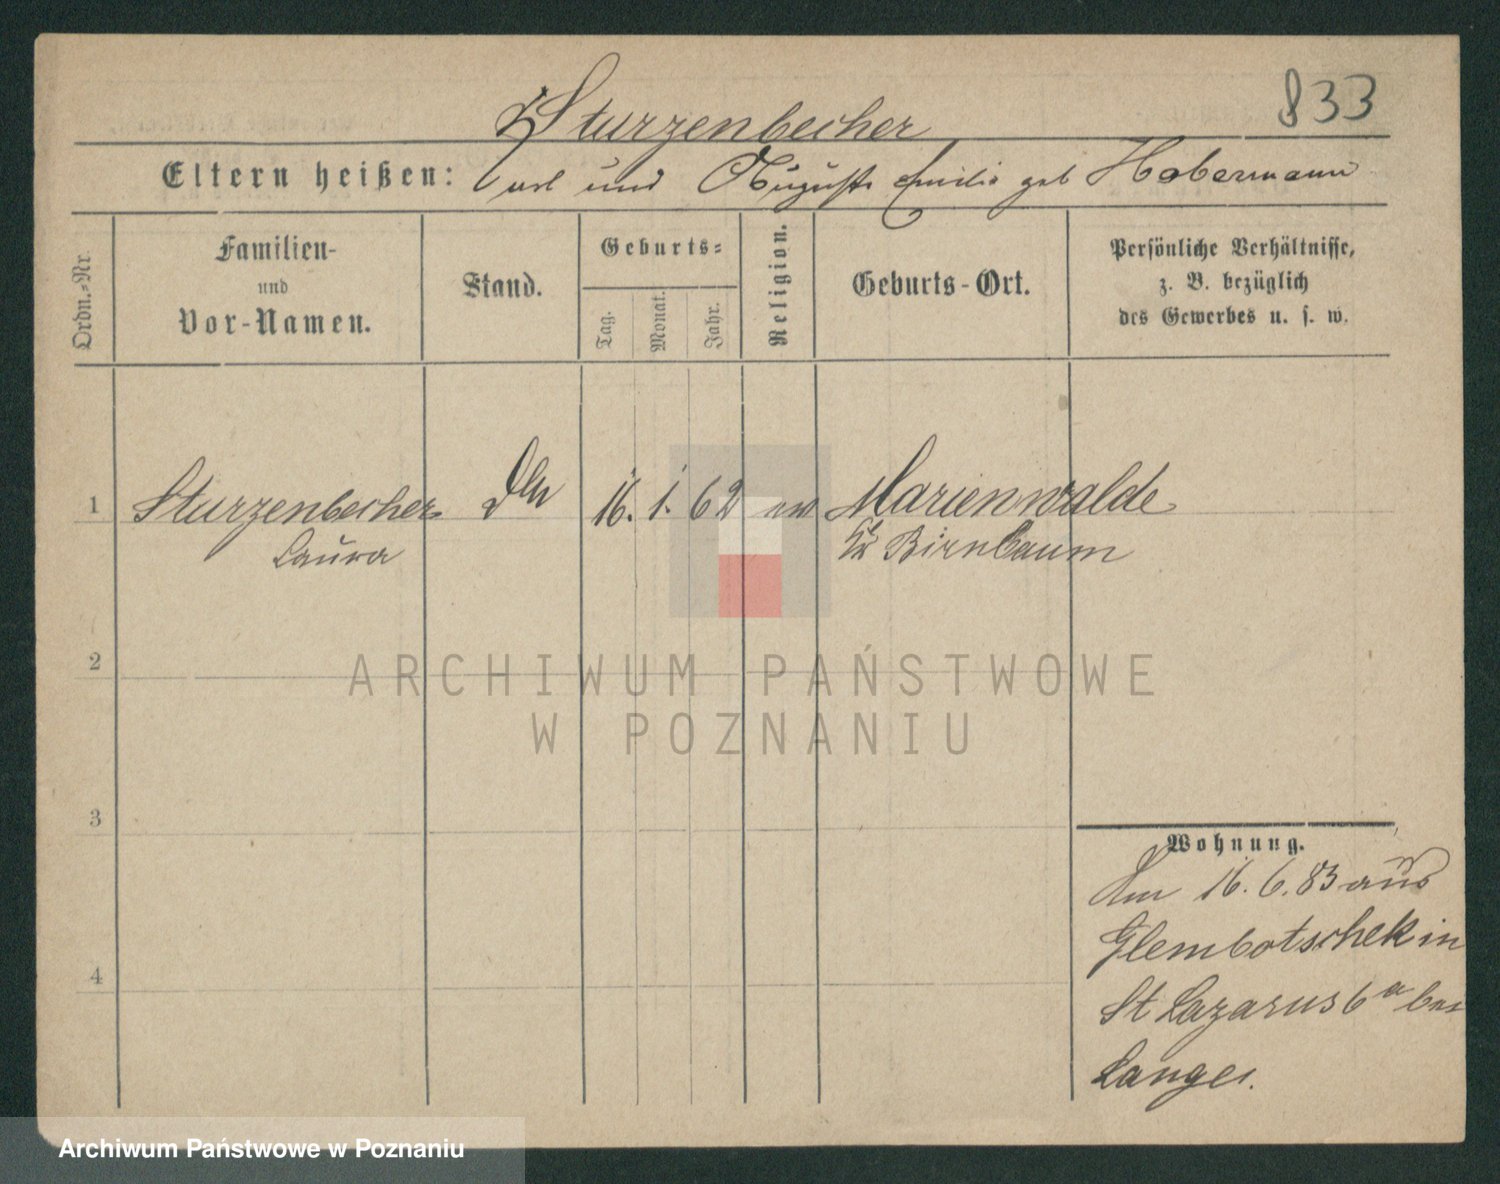 833
Sturzenbecher
Eltern heißen: Carl und Auguste Emilie geb Habermann
Ordn.-Nr.
Familien-
und
Vor-Namen.
Stand.
Geburts-
Tag.
Monat.
Jahr.
Religion.
Geburts-Ort.
Persönliche Verhältnisse,
z. B. bezüglich
des Gewerbes u. s. w.
1 Sturzenbecher 16. 1. 62 ev Marienwalde
Laura Kr Birnbaum
2
ARCHIWUM PAŃSTWOWE
W POZNANIU
3
Wohnung.
Am 16. 6. 83 aus
Glembotschek in
St Lazarus 6a bei
Lange.
4
Archiwum Państwowe w Poznaniu